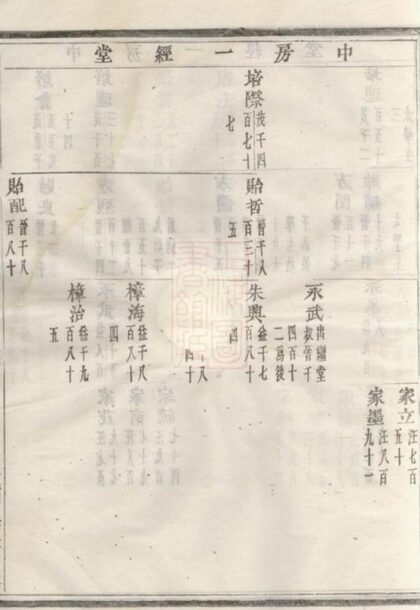 中房一經堂
培際茂千四
百七十
七
貽哲晉千八
百三十
五
貽配晉千八
百八十
永武出繼堂
叔晉千
四百十
二爲後
朱興益千七
百八十
四
樟海益千八
百八十
四
樟治益千九
百八十
五
家立汪七百
五十
家墨汪八百
九十一